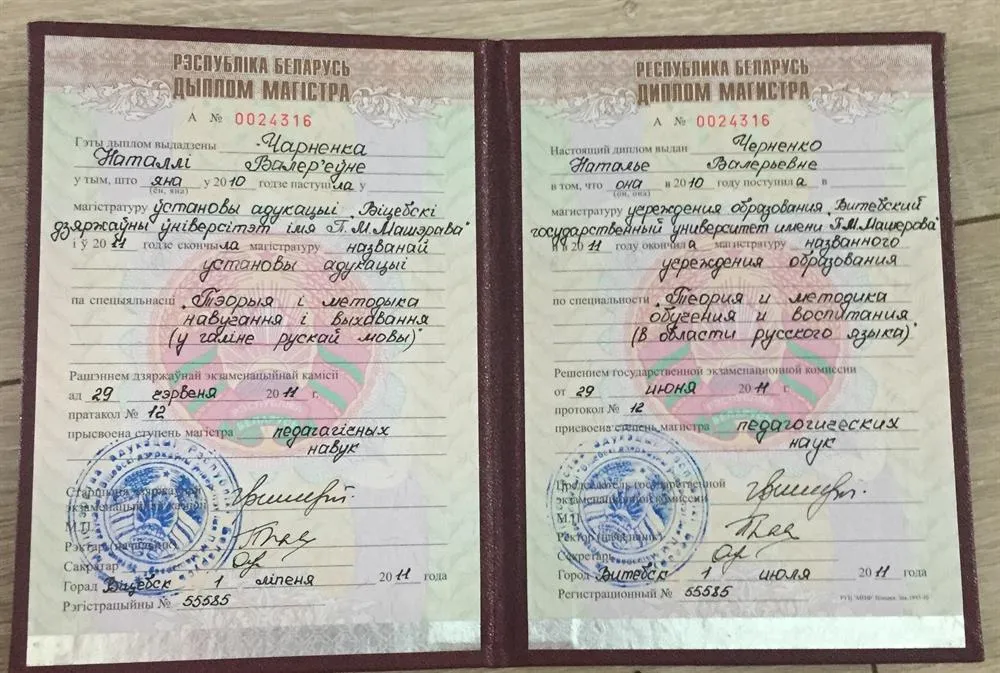 РЭСПУБЛІКА БЕЛАРУСЬ
ДЫПЛОМ МАГІСТРА
А № 0024316
Гэты дыплом выдадзены Чарненка
Наталлі Валер'еўне
у тым, што яна у 2010 годзе паступіла у
(ён, яна)
магістратуру ўстановы адукацыі „Віцебскі
дзяржаўны ўніверсітэт імя П.М.Машэрава"
і ў 2011 годзе скончыла магістратуру названай
установы адукацыі
па спецыяльнасці „Тэорыя і методыка
навучання і выхавання
(у галіне рускай мовы)"
Рашэннем дзяржаўнай экзаменацыйнай камісіі
ад 29 чэрвеня 2011 г.
пратакол № 12
прысвоена ступень магістра педагагічных
навук
Старшыня дзяржаўнай
экзаменацыйнай камісіі
М.П.
Рэктар (начальнік)
Сакратар
Горад Віцебск 1 ліпеня 2011 года
Рэгістрацыйны № 55585
РЕСПУБЛИКА БЕЛАРУСЬ
ДИПЛОМ МАГИСТРА
А № 0024316
Настоящий диплом выдан Черненко
Наталье Валерьевне
в том, что она в 2010 году поступила в
(он, она)
магистратуру учреждения образования „Витебский
государственный университет имени П.М.Машерова"
и в 2011 году окончила магистратуру названного
учреждения образования
по специальности „Теория и методика
обучения и воспитания
(в области русского языка)"
Решением государственной экзаменационной комиссии
от 29 июня 2011 г.
протокол № 12
присвоена степень магистра педагогических
наук
Председатель государственной
экзаменационной комиссии
М.П.
Ректор (начальник)
Секретарь
Город Витебск 1 июля 2011 года
Регистрационный № 55585